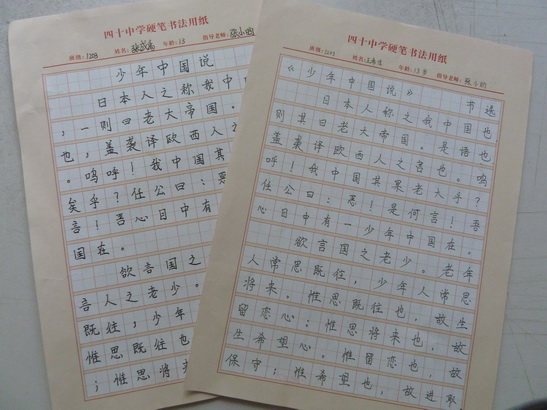 四十中学硬笔书法用纸
班级：1203 姓名： 年龄：13 指导老师：
少年中国说
日本人之称我中
，一则曰老大帝国。
也，盖袭译欧西人
。呜呼！我中国其
矣乎？任公曰：恶
言！吾心目中有
国在。
欲言国之
言人之老少。
既往，少年
惟思既往也
；惟思将
四十中学硬笔书法用纸
班级：1203 姓名： 年龄：13岁 指导老师：
《少年中国说》 节选
日本人称之我中国也，
则其曰老大帝国。是语也，
盖袭译欧西人之言也。呜
呼！我中国其果老大乎？
任公曰：恶！是何言！吾
心目中有一少年中国在。
欲言国之老少。老年
人常思既往，少年人常思
将来。惟思既往也，故生
留恋心；惟思将来也，故
生希望心。惟留恋也，故
保守；惟希望也，故进取